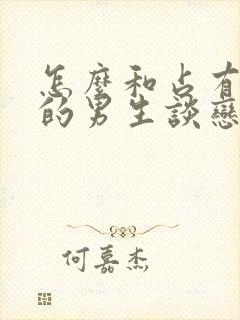 怎麼和占有
的男生談戀
何嘉杰